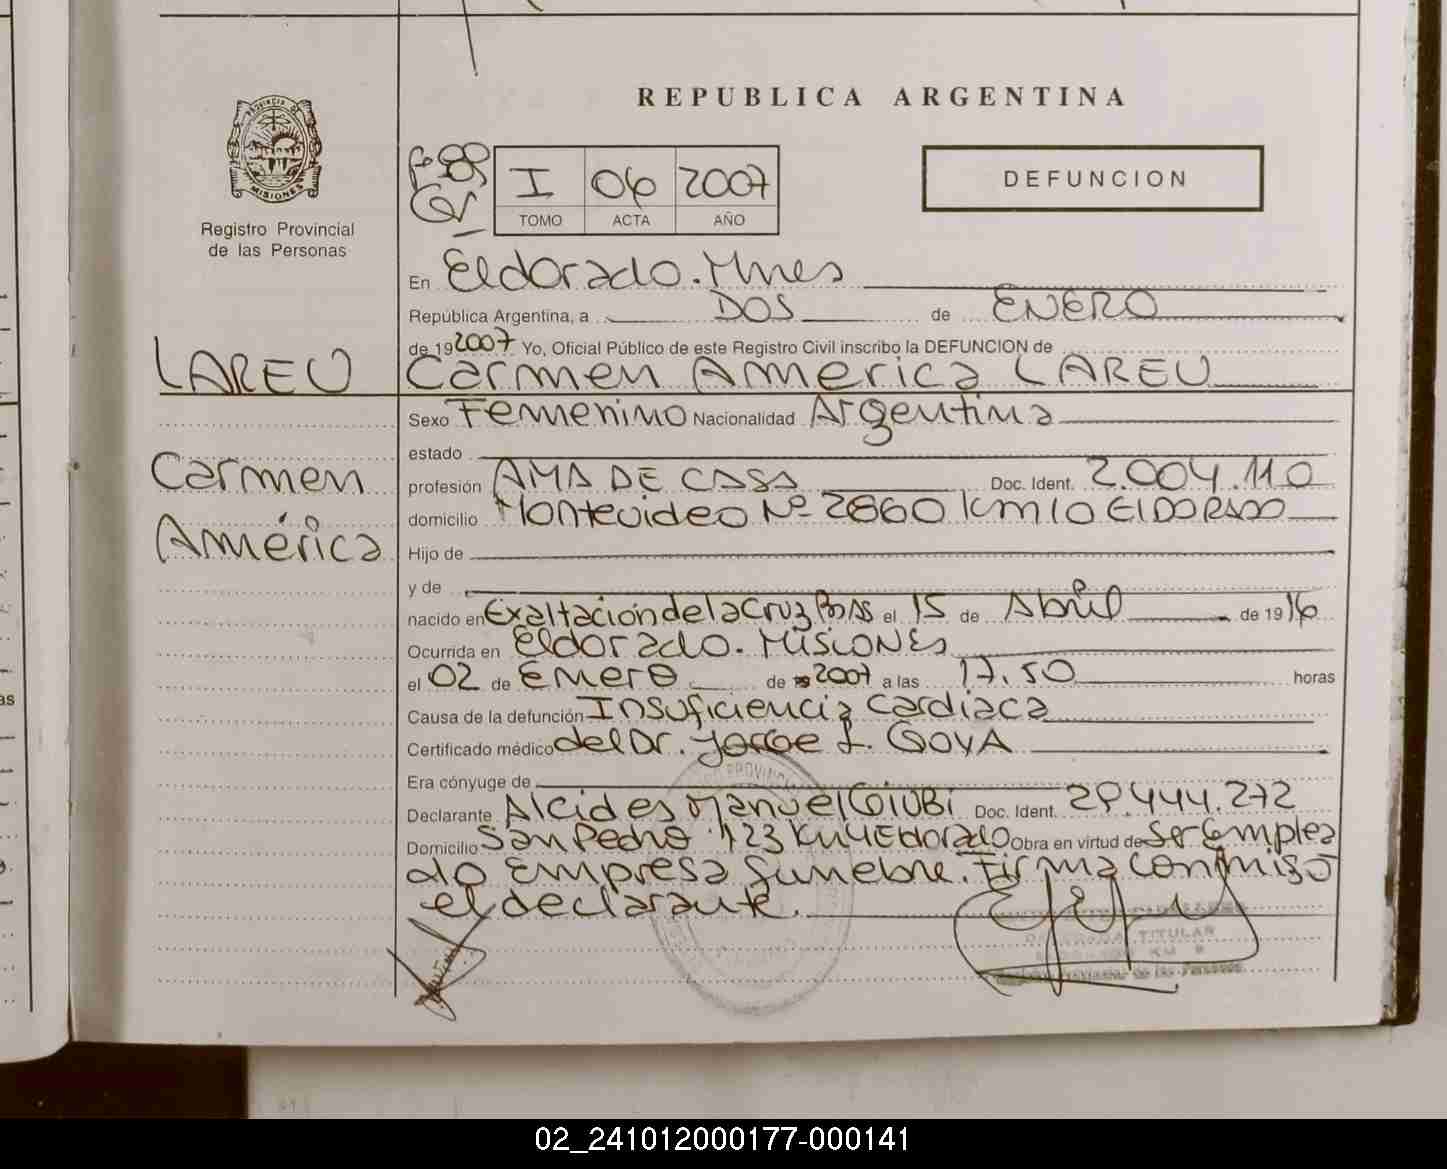 REPUBLICA ARGENTINA
PROVINCIA DE
MISIONES
Registro Provincial
de las Personas
I 06 2007
TOMO ACTA AÑO
DEFUNCION
En Eldorado. Mnes
República Argentina, a DOS de ENERO
de 19 2007 Yo, Oficial Público de este Registro Civil inscribo la DEFUNCION de
LAREU
Carmen America LAREU
Sexo Femenino Nacionalidad Argentina
estado
Carmen
América
profesión AMA DE CASA Doc. Ident. 2.004.110
domicilio Montevideo Nº 2860 Km 10 ElDORADO
Hijo de
y de
nacido en Exaltación de la Cruz Bs As el 15 de Abril de 19 16
Ocurrida en Eldorado. MISIONES
el 02 de Enero de 2007 a las 17.50 horas
Causa de la defunción Insuficiencia Cardiaca
Certificado médico del Dr. Jorge L. GOYA
Era cónyuge de
Declarante Alcides Manuel GIUBI Doc. Ident. 29.444.272
Domicilio San Pedro 123 Km 4 Eldorado Obra en virtud de Ser Emplea
do Empresa Funebre. Firma conmigo
el declarante.
TITULAR
02_241012000177-000141